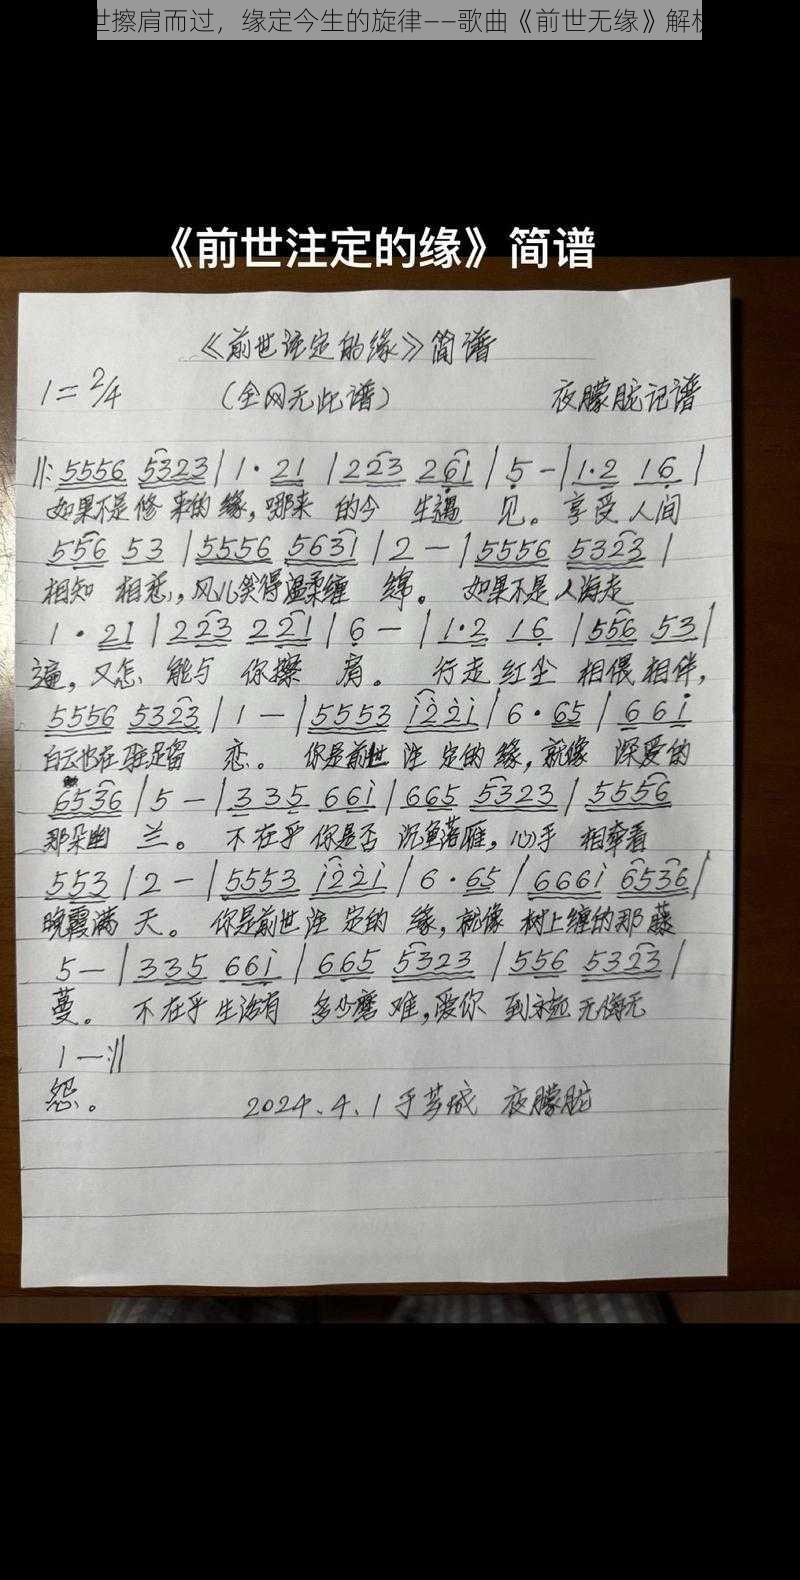 世擦肩而过，缘定今生的旋律——歌曲《前世无缘》解析
《前世注定的缘》简谱
《前世注定的缘》简谱
1=2/4 (全网无此谱) 夜朦胧记谱
‖: 5556 5323 | 1· 21 | 223 261 | 5 – | 1·2 16 |
如果不是修来的缘，哪来 的今 生遇 见。享受人间
556 53 | 5556 5631 | 2 – | 5556 5323 |
相知 相恋，风儿笑得温柔缠 绵。 如果不是人海走
1 · 21 | 223 221 | 6 – | 1·2 16 | 556 53 |
遍，又怎 能与 你擦 肩。 行走红尘 相偎相伴，
5556 5323 | 1 – | 5553 i22i | 6·65 | 66i
白云也在驻足留 恋。 你是前世 注 定的 缘，就像 深爱的
6536 | 5 – | 335 66i | 665 5323 | 5556
那朵幽 兰。 不在乎 你是否 沉鱼落雁，心手 相牵看
553 | 2 – | 5553 i22i | 6·65 | 666i 6536 |
晚霞满 天。 你是前世注 定的 缘，就像 树上缠的那 藤
5 – | 335 66i | 665 5323 | 556 5323 |
蔓。 不在乎 生活有 多少磨 难，爱你 到永远 无悔无
1 – :‖
怨。 2024.4.1于 夜朦胧